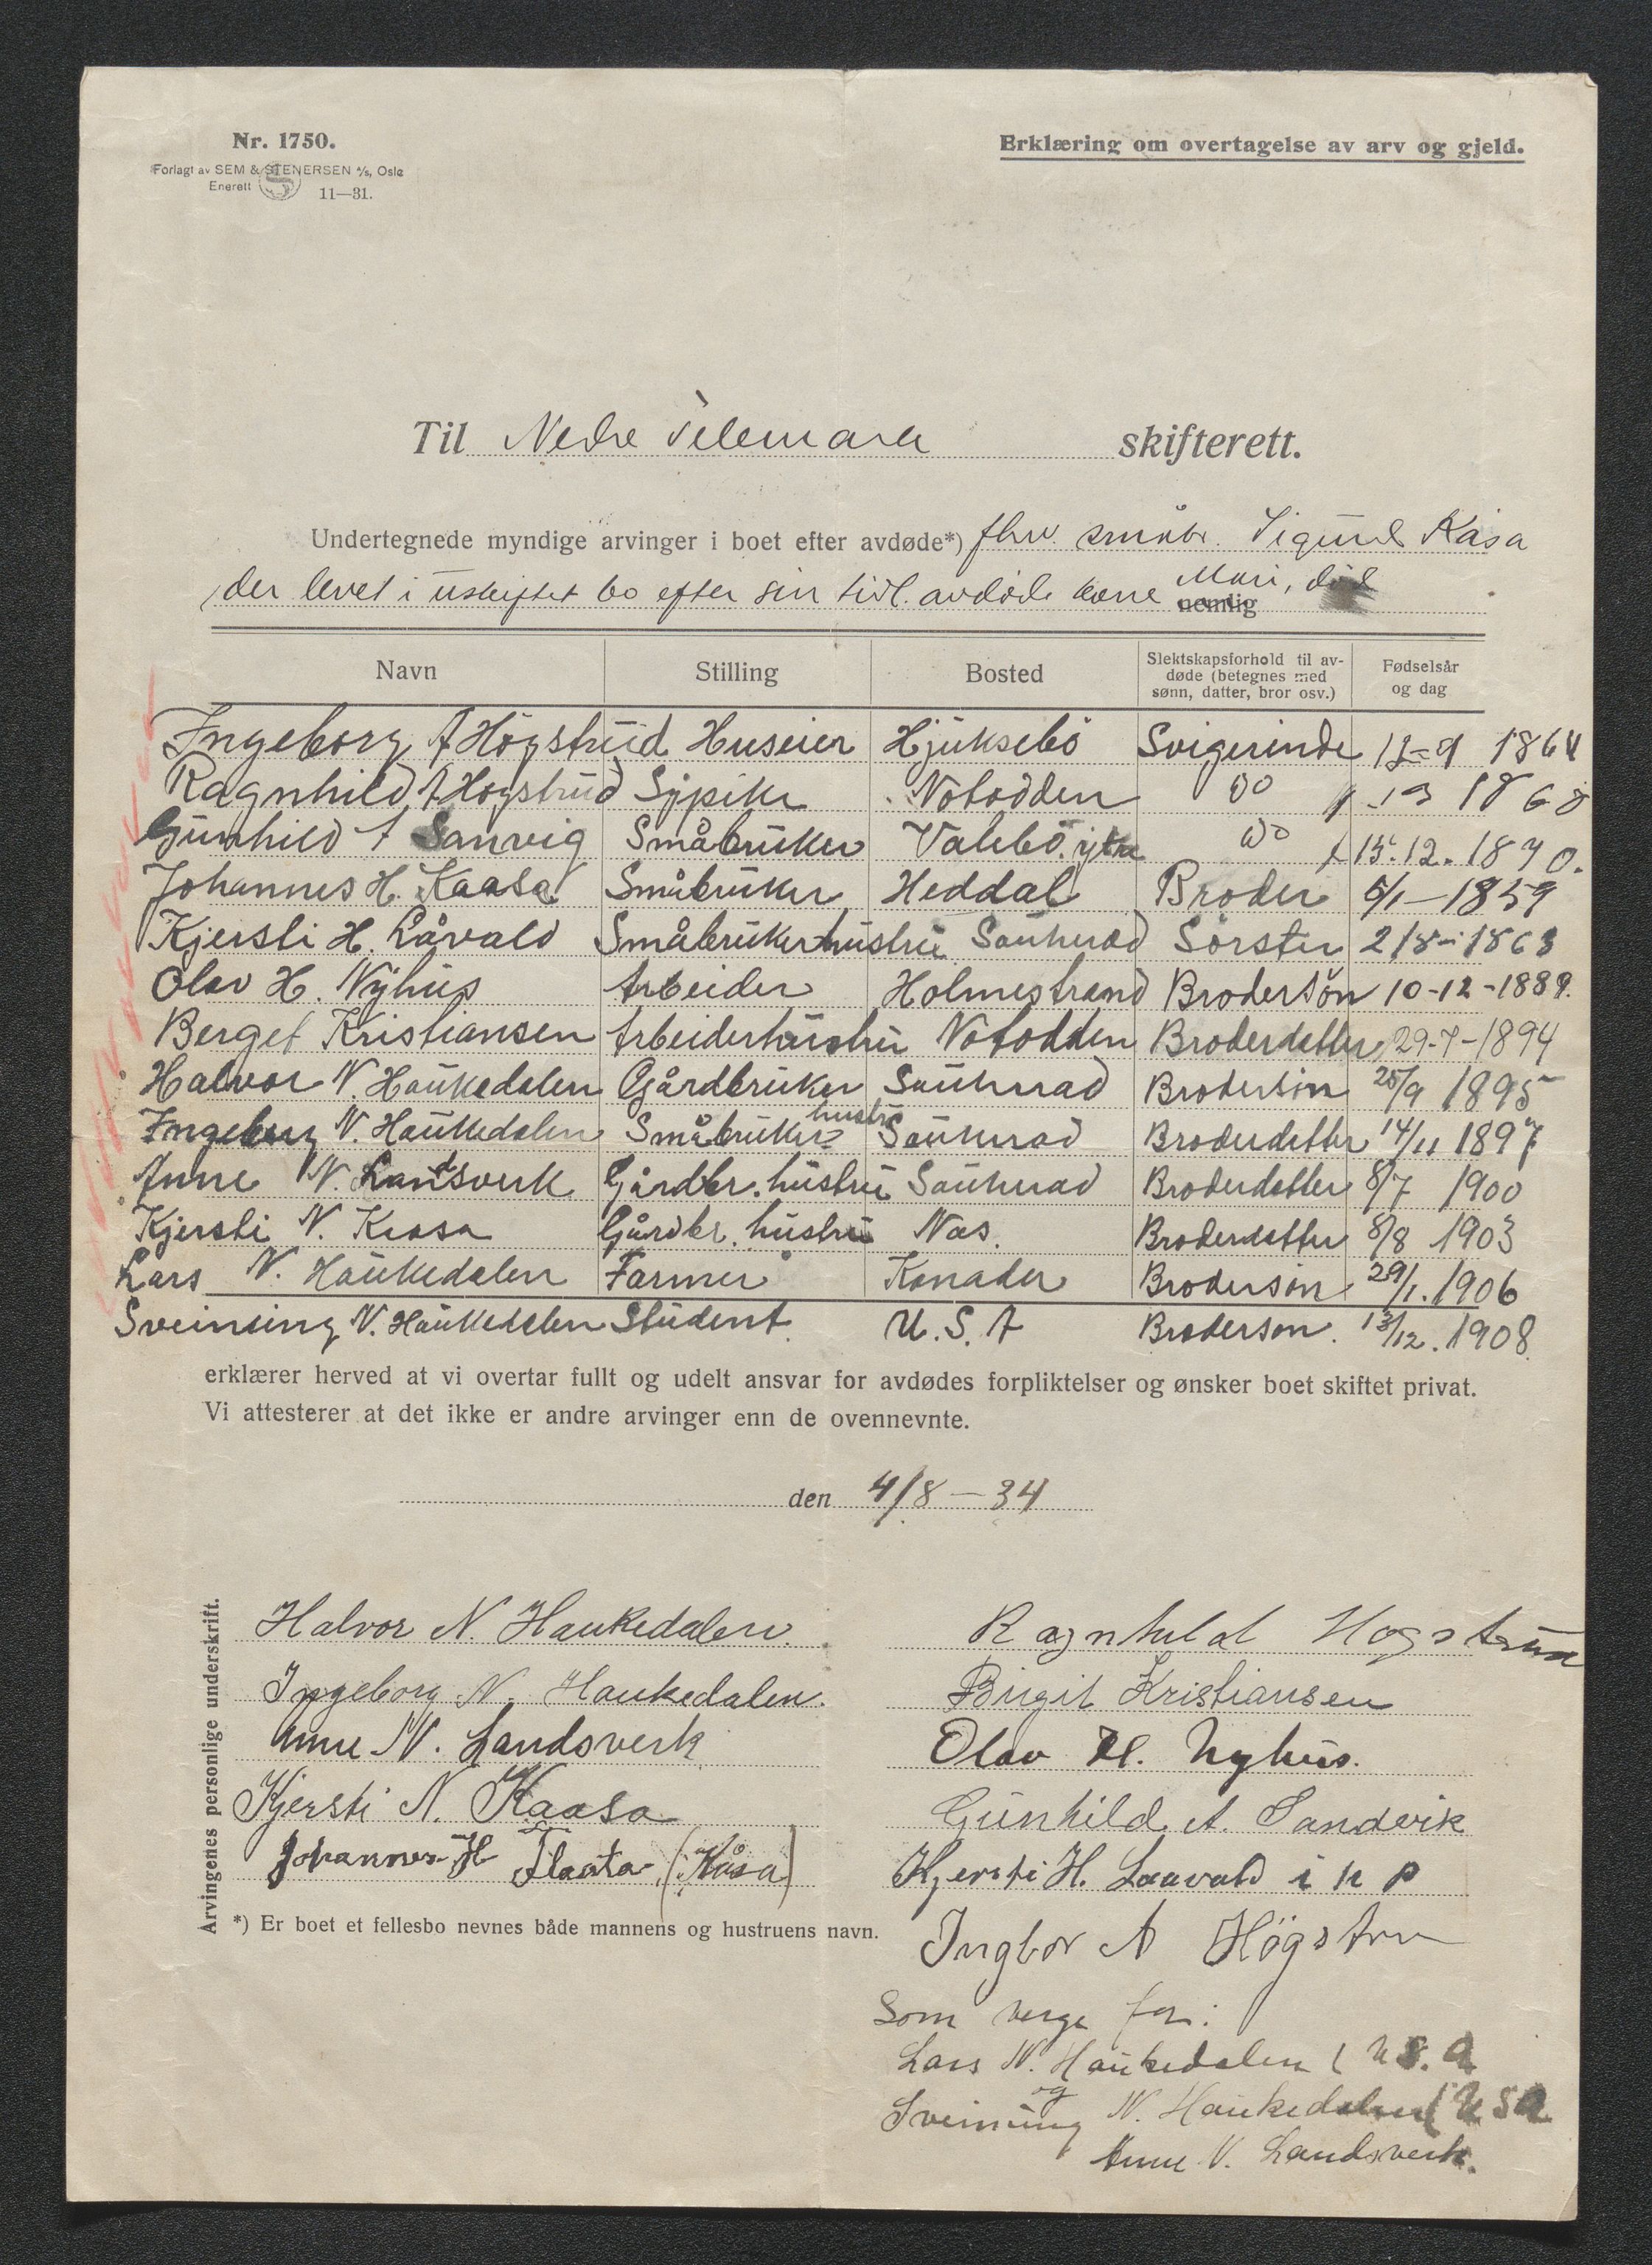 Nr. 1750.
Forlagt av SEM & STENERSEN A/S, Oslo
Enerett 11—31.
Erklæring om overtagelse av arv og gjeld.
Til Nedre Telemark skifterett.
Undertegnede myndige arvinger i boet efter avdøde*) fhv. småbr. Sigurd Kåsa
der levet i uskiftet bo efter sin tidl. avdøde kone Mari, død
nemlig
Navn Stilling Bosted Slektskapsforhold til avdøde (betegnes med sønn, datter, bror osv.) Fødselsår og dag
Ingeborg A Högstrud Huseier Hjuksebö Svigerinde 1864
Ragnhild A Hogstrud Sypike Notodden Do 1868
Gunhild A Sanvig Småbruker Valebö ytre Do 15.12.1870.
Johannes H. Kaasa Småbruker Heddal Broder 6/1—1859
Kjersti H. Låvald Småbrukerhustru Sauherad Sörster 2/8-1863
Olav H. Nyhus Arbeider Holmestrand Brodersön 10-12-1889.
Berget Kristiansen Arbeiderhustru Notodden Broderdatter 29-7-1894
Halvor N. Haukedalen Gårdbruker Sauherad Brodersön 25/9 1895
Ingeborg N. Haukedalen Småbruker hustru Sauherad Broderdatter 14/11 1897
Anne N. Landsverk Gårdbr. hustru Sauherad Broderdatter 8/7 1900
Kjersti N. Kaasa Gårdbr. hustru Nas. Broderdatter 8/8 1903
Lars N. Haukedalen Farmer Kanada Broderson 29/1. 1906
Sveinung N. Haukedalen Student U.S.A Broderson. 13/12. 1908.
erklærer herved at vi overtar fullt og udelt ansvar for avdødes forpliktelser og ønsker boet skiftet privat.
Vi attesterer at det ikke er andre arvinger enn de ovennevnte.
den 4/8—34
Arvingenes personlige underskrift.
Halvor N. Haukedalen.
Ingeborg N. Haukedalen.
Anne N. Landsverk
Kjersti N. Kaasa
Johannes H Flaata (Kåsa)
*) Er boet et fellesbo nevnes både mannens og hustruens navn.
Ragnhild Hogstrud
Birgit Kristiansen
Olav H. Nyhus.
Gunhild A. Sandvik
Kjersti H. Laavald i h p
Ingbor A Högstru
Som verge for:
Lars N. Haukedalen (U.S.A
og
Sveinung N. Haukedalen (USA
Anne N. Landsverk.